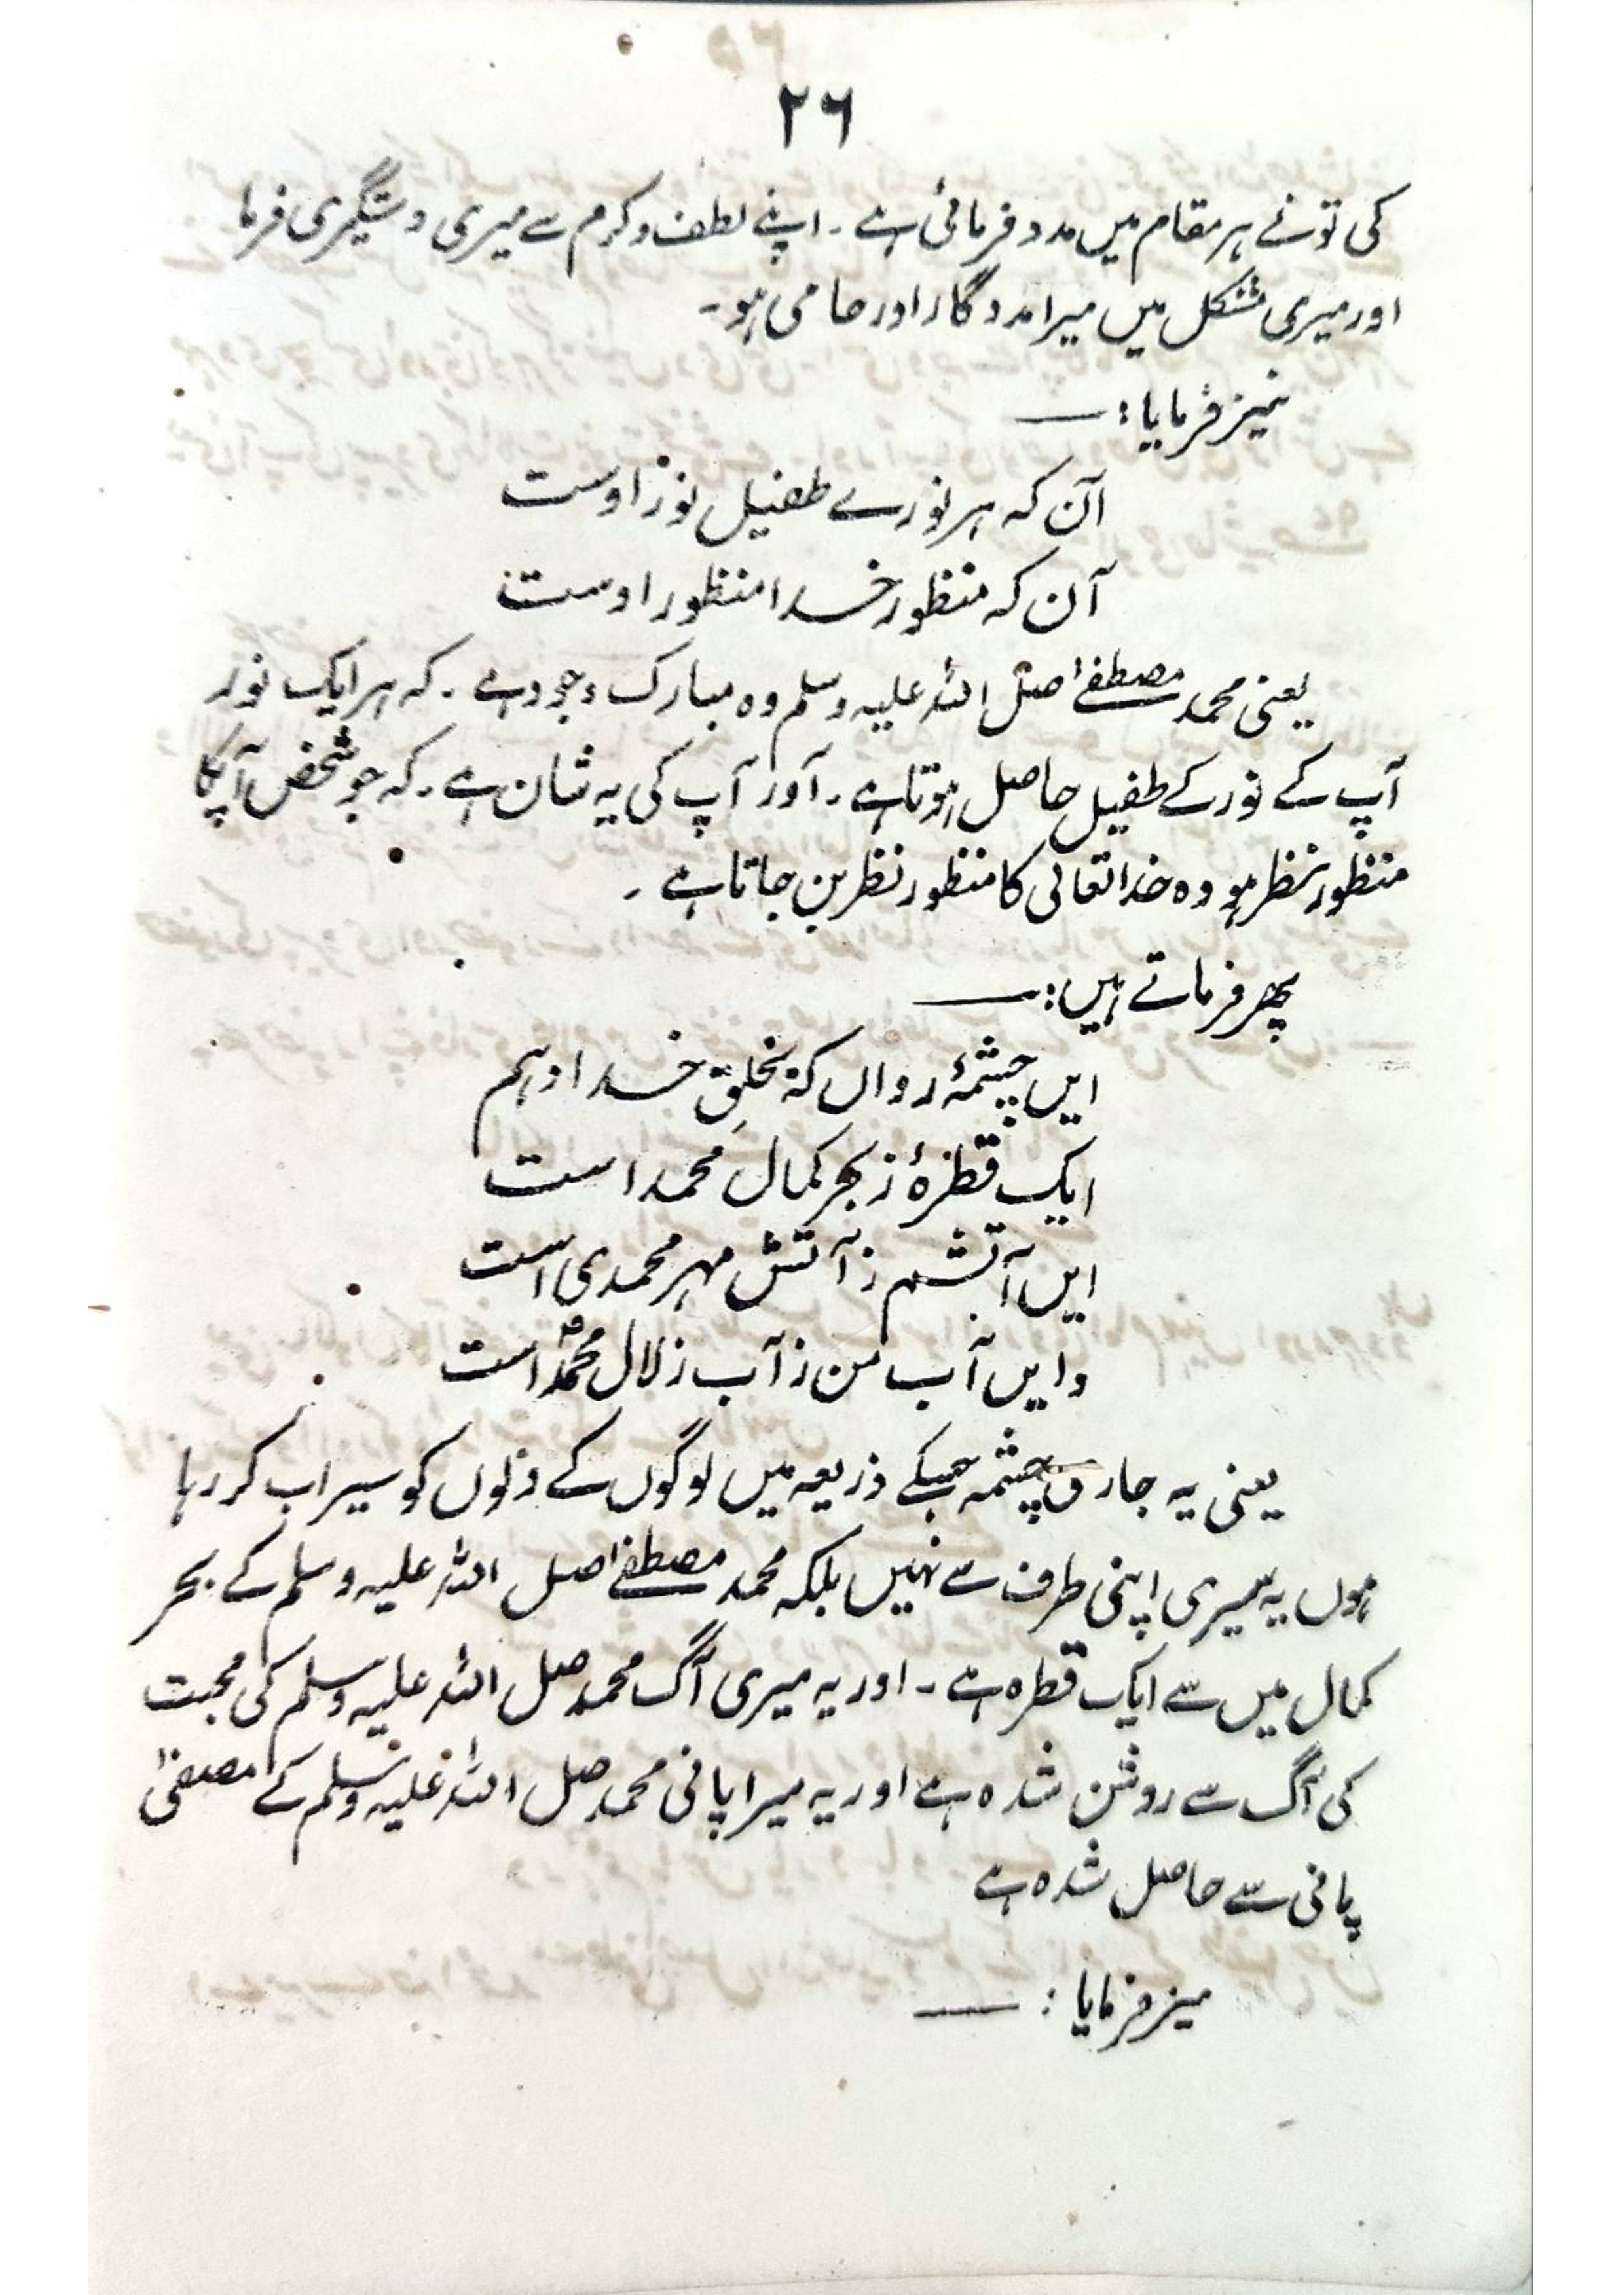 ۲۶
کی تونے ہر مقام میں مدد فرمائی ہے ۔ اپنے لطف و کرم سے میری دستگیری فرما
اور میری مشکل میں میرا مددگار اور حامی ہو ۔
نیز فرمایا : ــــ
آن کہ ہر نورے طفیل نور اوست
آن کہ منظور خدا منظور اوست
یعنی محمد مصطفےٰ صلی اللہ علیہ وسلم وہ مبارک وجود ہے ۔ کہ ہر ایک نور
آپ کے نور کے طفیل حاصل ہوتا ہے ۔ آور آپ کی یہ شان ہے ۔ کہ جو شخص آپکا
منظور نظر ہو وہ خدا تعالیٰ کا منظور نظر بن جاتا ہے ۔
پھر فرماتے ہیں : ــــ
ایں چشمۂ رواں کہ بخلقِ خدا دہم
ایک قطرۂ ز بحر کمال محمد است
ایں آتشم ز آتش مہر محمدی است
و ایں آب من ز آب زلال محمدؐ است
یعنی یہ جاری چشمہ جسکے ذریعہ میں لوگوں کے دلوں کو سیراب کر رہا
ہوں یہ میری اپنی طرف سے نہیں بلکہ محمد مصطفےٰ صلی اللہ علیہ وسلم کے بحر
کمال میں سے ایک قطرہ ہے ۔ اور یہ میری آگ محمد صلی اللہ علیہ وسلم کی محبت
کی آگ سے روشن شدہ ہے اور یہ میرا پانی محمد صلی اللہ علیہ وسلم کے مصفیٰ
پانی سے حاصل شدہ ہے
نیز فرمایا : ــــ